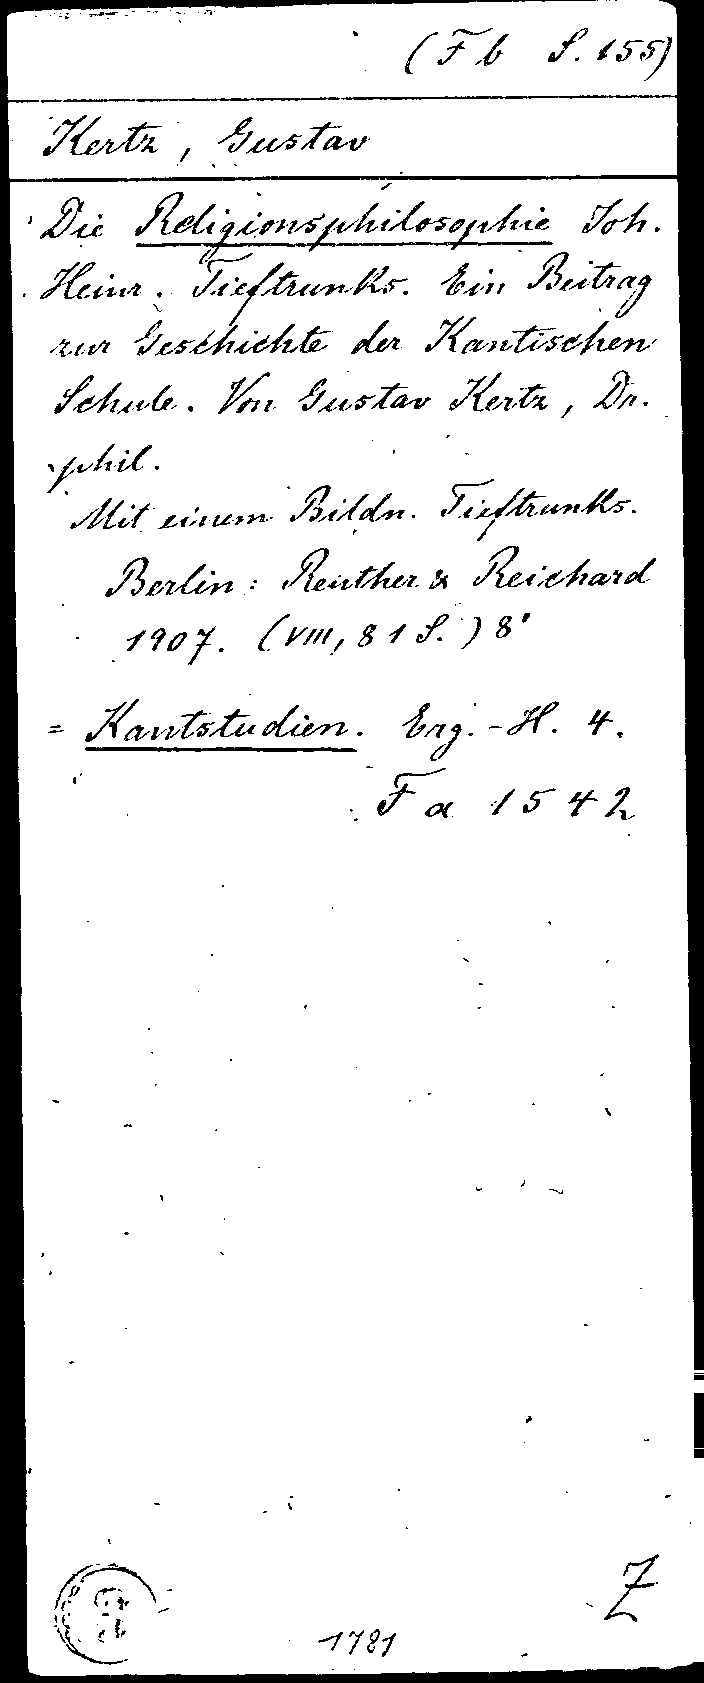 (F b S. 155)
Kertz, Gustav
Die Religionsphilosophie Joh.
Heinr. Tieftrunks. Ein Beitrag
zur Geschichte der Kantischen
Schule. Von Gustav Kertz, Dr.
phil.
Mit einem Bildn. Tieftrunks.
Berlin: Reuther & Reichard
1907. (VIII, 81 S.) 8°
= Kantstudien. Erg.-H. 4.
F a 1542
Z
1781